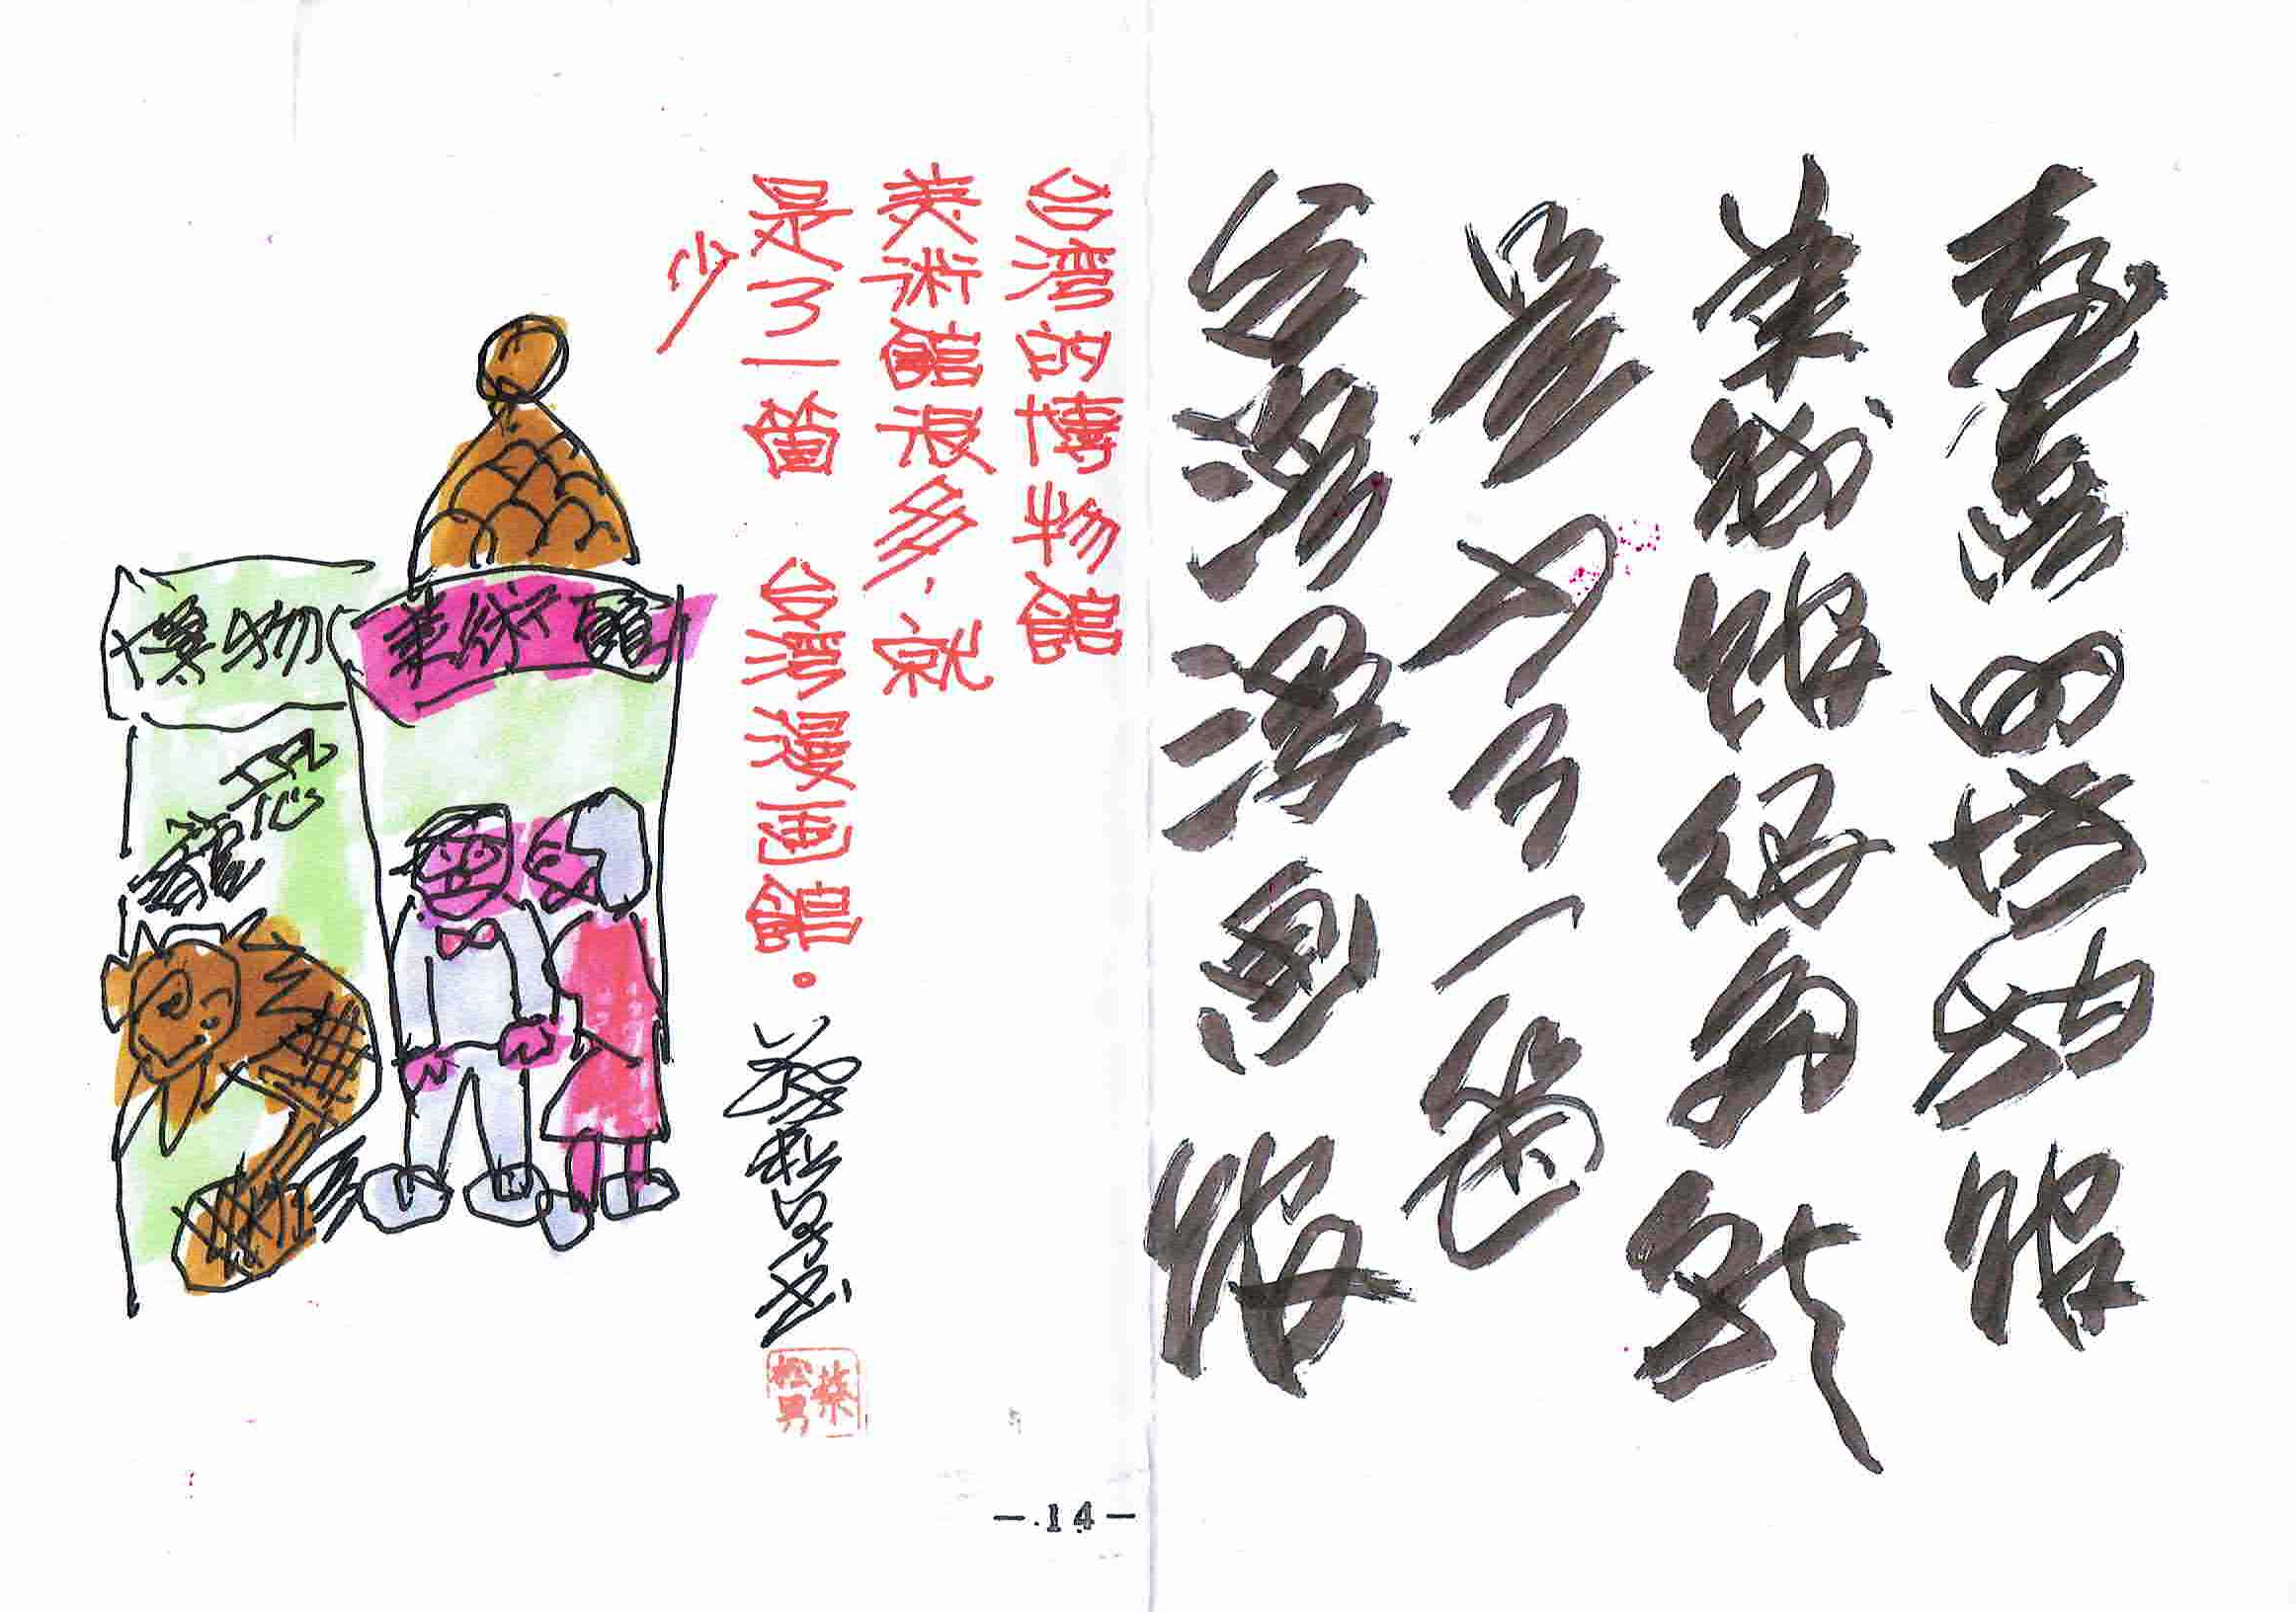 臺灣的博物館
美術館很多就
是少了一箇
台灣漫画館
台湾的博物館
美術館很多，就
是了一箇 台灣漫画館。
少
蔡松男書
蔡松男
美術館
博物
恐龍
— 14 —